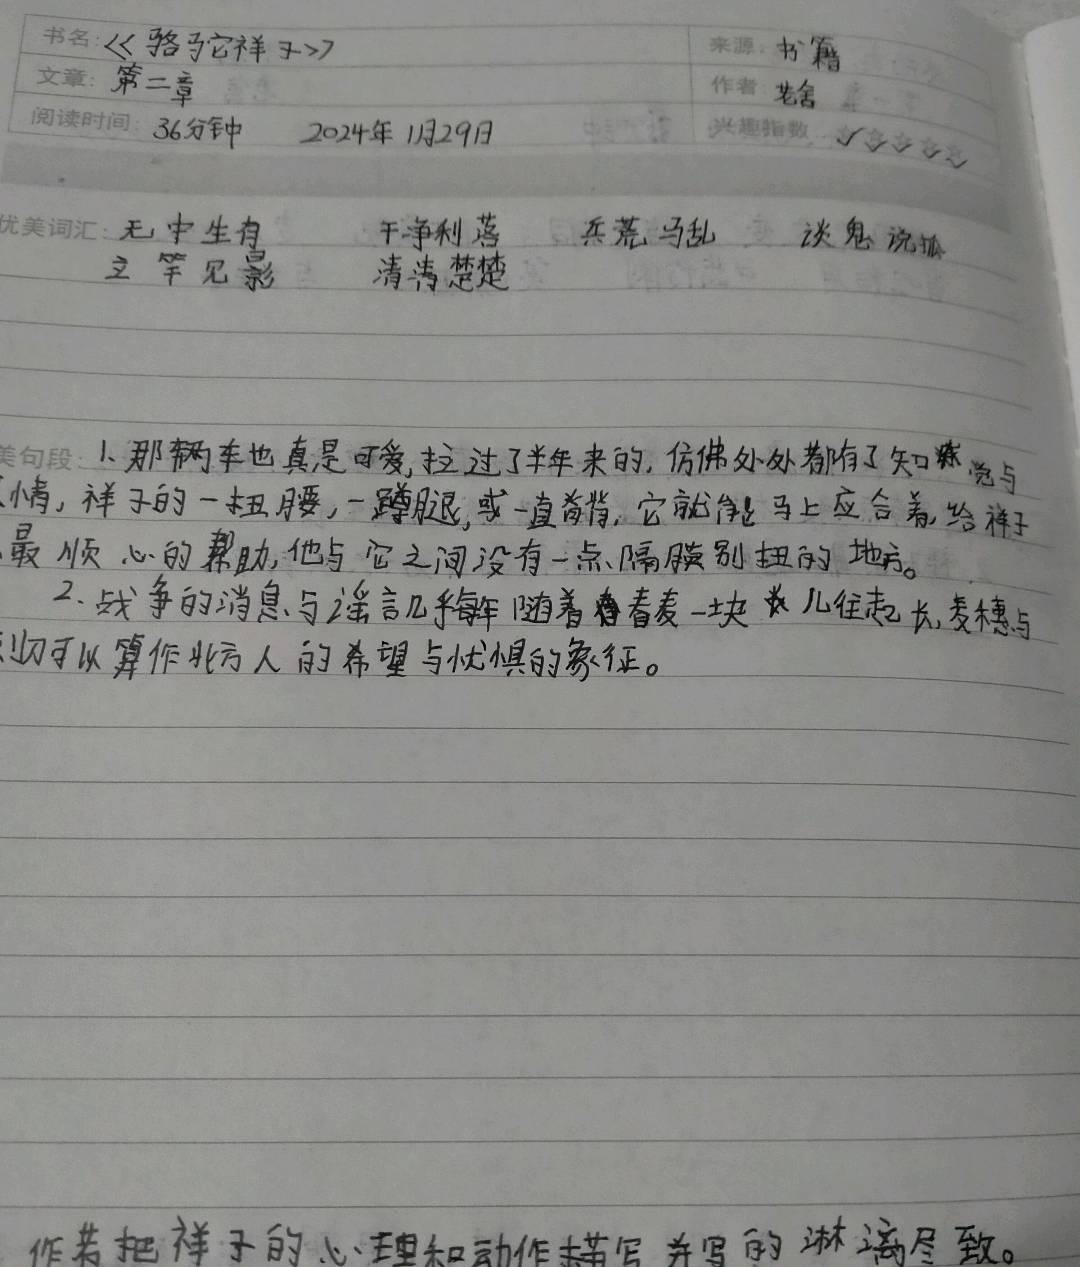 书名: 《骆驼祥子》 来源: 书籍
文章: 第二章 作者 老舍
阅读时间: 36分钟 2024年11月29日 兴趣指数
优美词汇: 无中生有 干净利落 兵荒马乱 谈鬼说狐
立竿见影 清清楚楚
美句段: 1、那辆车也真是可爱,拉过了半年来的,仿佛处处都有了知觉与
情,祥子的一扭腰,一蹲腿,或一直脊背,它就能马上应合着,给祥子
最顺心的帮助,他与它之间没有一点隔膜别扭的地方。
2、战争的消息与谣言几乎每年随着春麦一块儿往起长,麦穗与
刺刀可以算作北方人的希望与忧惧的象征。
作者把祥子的心理和动作描写并写的淋漓尽致。